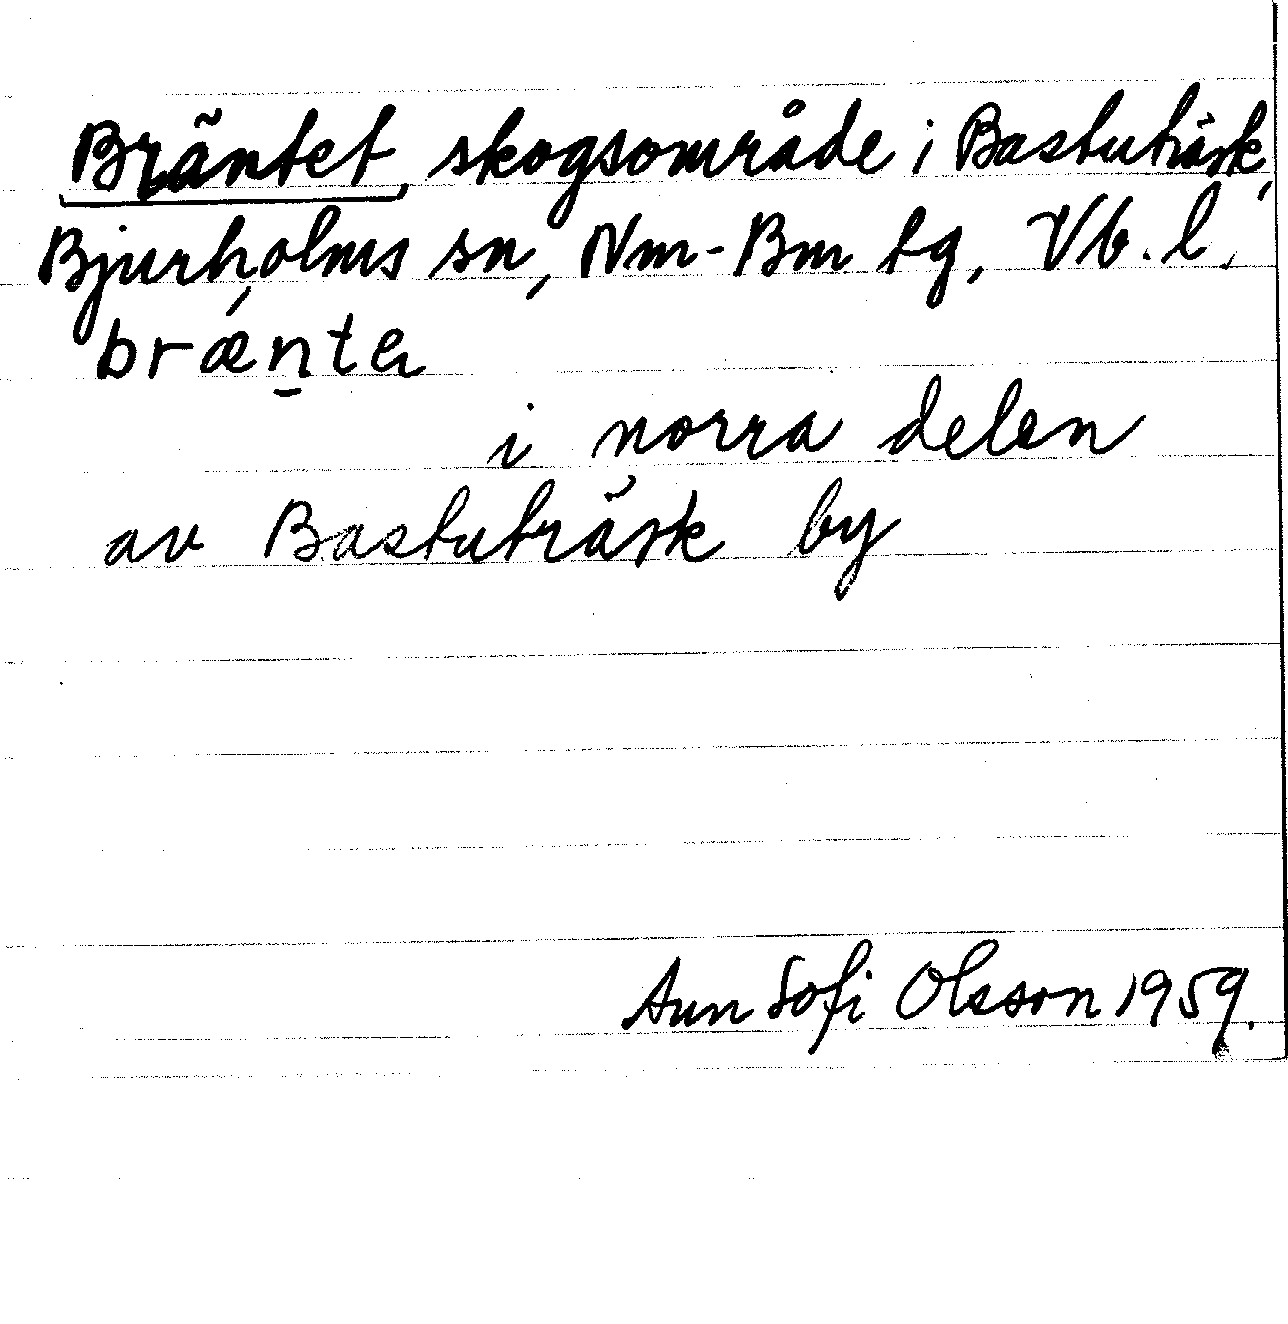 Bräntet, skogsområde i Bastuträsk,
Bjurholms sn, Nm-Bm tg, Vb. l.
bræ̀n̠ta
i norra delen
av Bastuträsk by
Ann Sofi Olsson 1959.